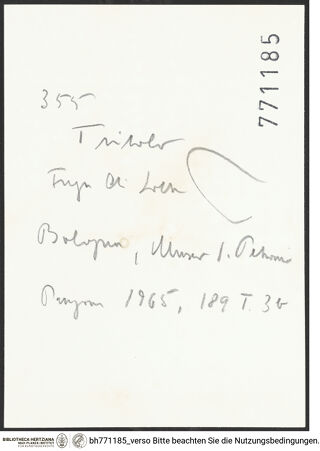 771185
355
Tribolo
Fuga di Loth
Bologna, Museo S. Petronio
1965, 189 T. 3b
BIBLIOTHECA HERTZIANA
MAX-PLANCK-INSTITUT
FÜR KUNSTGESCHICHTE
bh771185_verso Bitte beachten Sie die Nutzungsbedingungen.